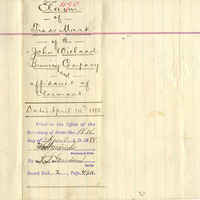 490
Claim
of
Trade Mark
of the
John Wieland
Brewing Company
and
affidavit of
Claimant
Dated April 14th 1885.
Filed in the Office of the
Secretary of State the
day of April A.D. 1885
Secretary of State.
By
Deputy.
Record Book 2, Page 490